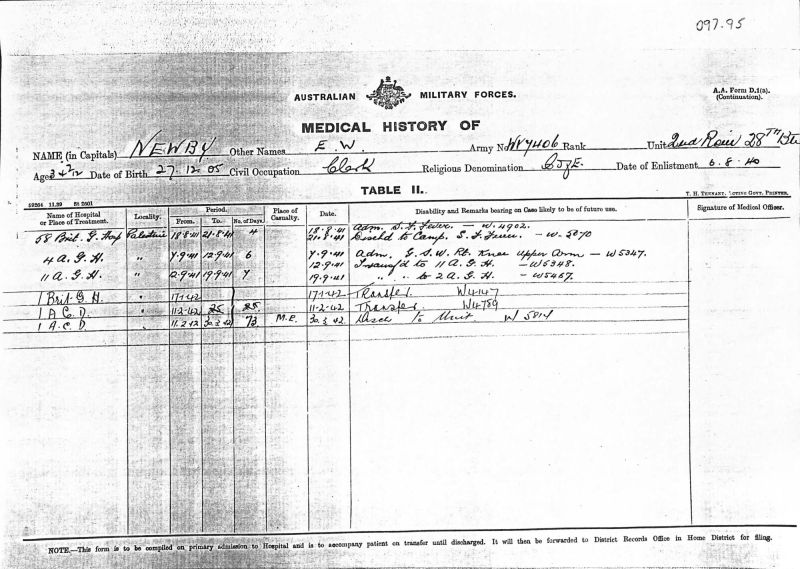 097.95
AUSTRALIAN MILITARY FORCES.
A.A. Form D.1(a).
(Continuation).
MEDICAL HISTORY OF
NAME (in Capitals) NEWBY Other Names E. W. Army No. Rank Unit 28TH
Aged 34 7/12 Date of Birth 27.12.05 Civil Occupation Clerk Religious Denomination C of E. Date of Enlistment 6.8.40
TABLE II.
T. H. TENNANT, ACTING GOVT. PRINTER.
Name of Hospital or Place of Treatment. Locality. Period. From. To. No. of Days. Place of Casualty. Date. Disability and Remarks bearing on Case likely to be of future use. Signature of Medical Officer.
58 Brit. G. Hosp Palestine 18.8.41 21.8.41 4 18.8.41 Adm. S. F. Fever. — W. 4902.
21.8.41 to Camp. S. F. Fever. — W.
4 A. G. H. " 7.9.41 12.9.41 6 7.9.41 Adm. G. S. W. Rt. Knee upper Arm — W5347.
12.9.41 Transf'd to 11 A. G. H. — W5348.
11 A. G. H. " 12.9.41 19.9.41 7 19.9.41 " " to 2 A. G. H. — W5457.
1 Brit G. H. " 17.1.42 17.1.42 Transfer. W4147
1 A. C. D. " 11.2.42 25 25 11.2.42 Transfer. W4759
1 A. C. D. " 11.2.42 30.3.42 73 M.E. 30.3.42 Disch to Unit W 5814
NOTE.—This form is to be compiled on primary admission to Hospital and is to accompany patient on transfer until discharged. It will then be forwarded to District Records Office in Home District for filing.